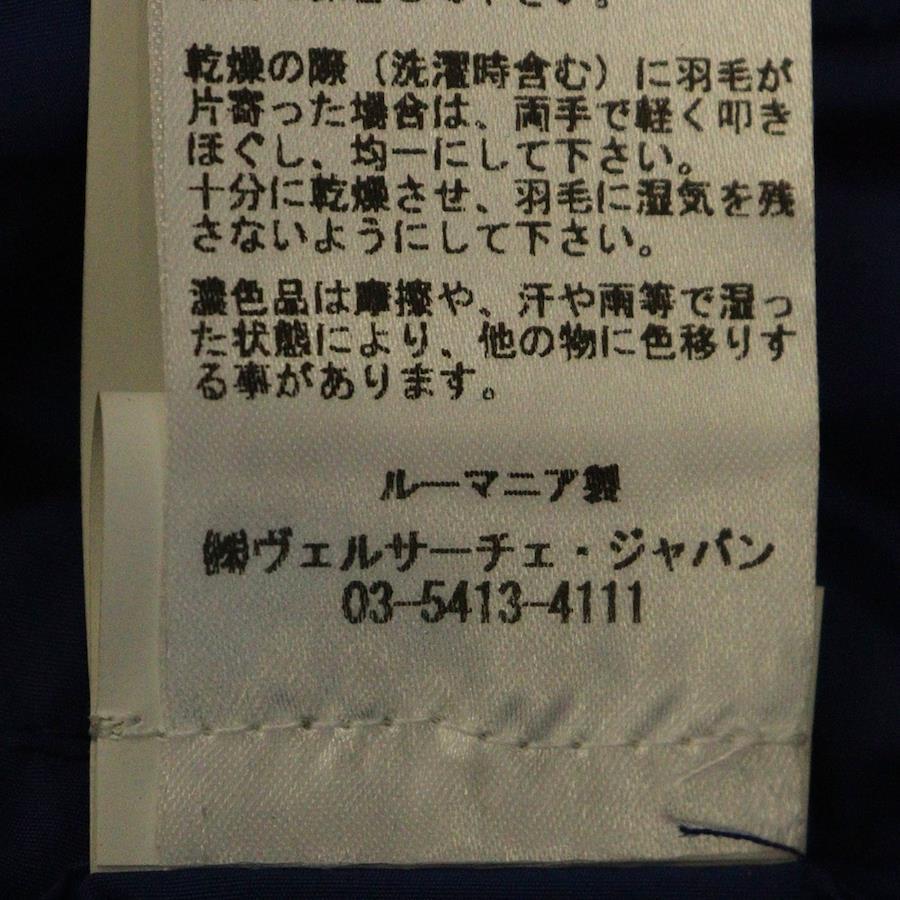 下さい。
乾燥の際（洗濯時含む）に羽毛が
片寄った場合は、両手で軽く叩き
ほぐし、均一にして下さい。
十分に乾燥させ、羽毛に湿気を残
さないようにして下さい。
濃色品は摩擦や、汗や雨等で湿っ
た状態により、他の物に色移りす
る事があります。
ルーマニア製
㈱ヴェルサーチェ・ジャパン
03-5413-4111